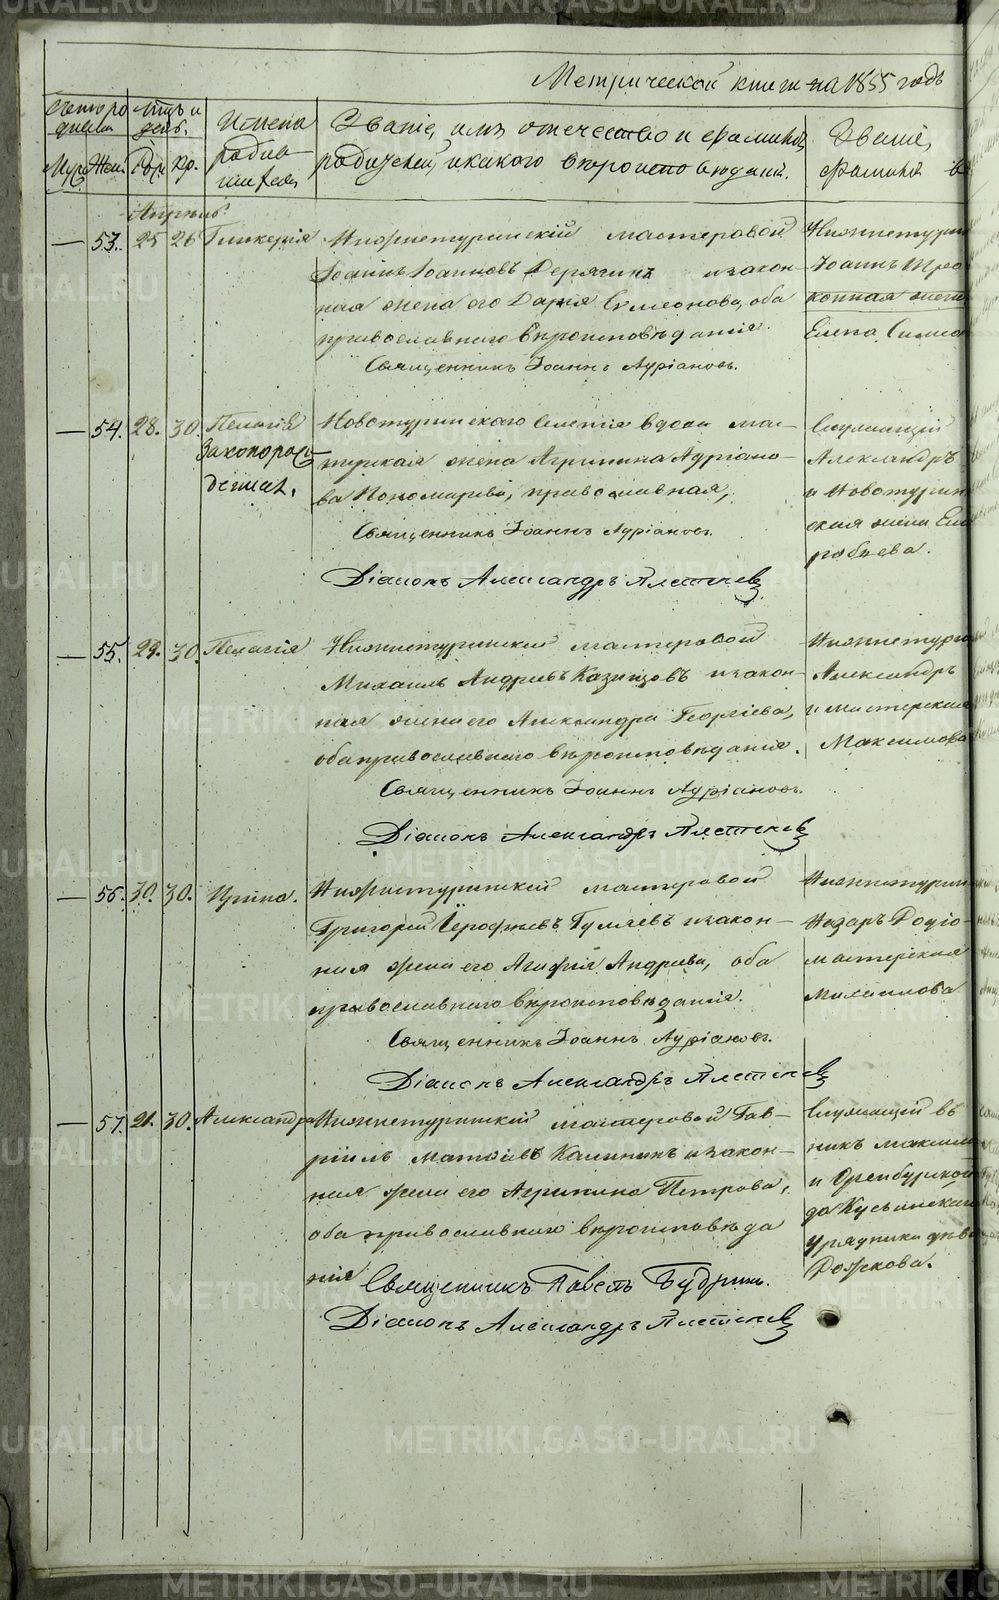 Метрической книги на 1855 годъ
Счетъ родившихся
Мѣсяцъ и день.
Имена родившихся
Званіе, имя, отчество и фамилія родителей, и какого вѣроисповѣданія.
Званіе,
фамилія
Муж. Жен.
Рож. Кр.
Апрѣль
— 53. 25 26 Гликерія Нижнетуринскій мастеровой
Іоаннъ Іоанновъ Дерягинъ и закон-
ная жена его Дарья Симеонова, оба
православнаго вѣроисповѣданія.
Священникъ Іоаннъ Адріановъ.
Нижнетурин
Іоаннъ
конная жена
Елена
— 54. 28. 30. Пелагія
Незаконорож-
денная.
Новотуринскаго селенія вдова мас-
терская жена Агрипина Адріано-
ва Пономарева, православная,
Священникъ Іоаннъ Адріановъ.
Діаконъ Александръ Плетневъ
Служащій
Александръ
и Новотурин
ская жена
— 55. 29. 30. Пелагія Нижнетуринскій мастеровой
Михаилъ Андреевъ Казанцовъ и закон-
ная жена его Александра Георгіева,
оба православнаго вѣроисповѣданія.
Священникъ Іоаннъ Адріановъ.
Діаконъ Александръ Плетневъ
Нижнетури
Александръ
и мастерская
Максимова
— 56. 30. 30. Ирина. Нижнетуринскій мастеровой
Григорій Іерофеевъ Гуляевъ и закон-
ная жена его Агафія Андреева, оба
православнаго вѣроисповѣданія.
Священникъ Іоаннъ Адріановъ.
Діаконъ Александръ Плетневъ
Нижнетурин
Назаръ Родіо-
мастерская
Михаилова
— 57. 21. 30. Александра Нижнетуринскій мастеровой Гав-
ріилъ Матвѣевъ Калининъ и закон-
ная жена его Агрипина Петрова,
оба православнаго вѣроисповѣда
нія
Священникъ Павелъ Будринъ.
Діаконъ Александръ Плетневъ
Служащій въ
никъ Максим
и Оренбургской
да Кусинскаго
урядника
Рожкова.
METRIKI.GASO-URAL.RU